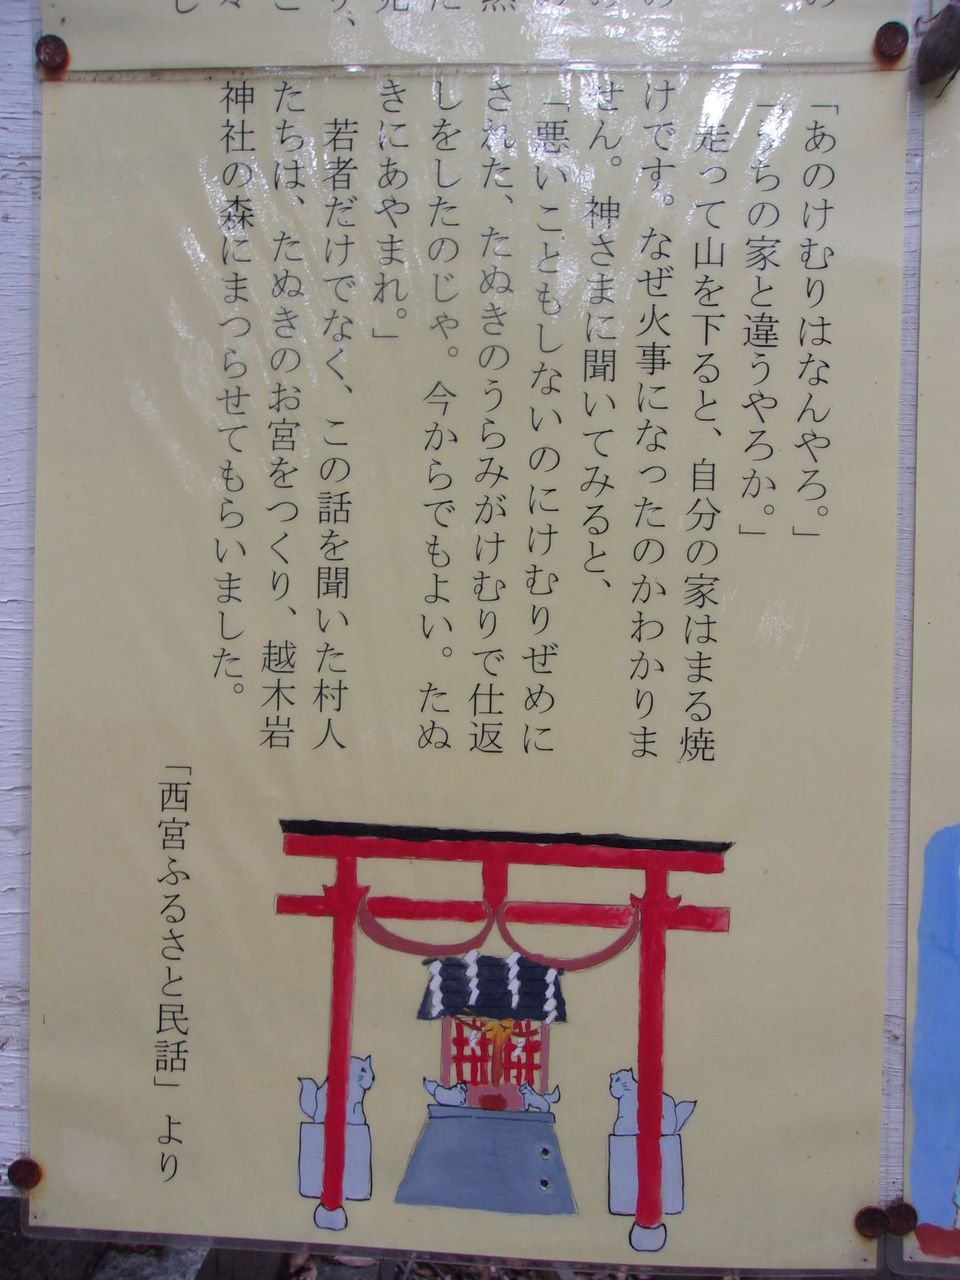 「あのけむりはなんやろ。」
「うちの家と違うやろか。」
走って山を下ると、自分の家はまる焼
けです。なぜ火事になったのかわかりま
せん。神さまに聞いてみると、
「悪いこともしないのにけむりぜめに
された、たぬきのうらみがけむりで仕返
しをしたのじゃ。今からでもよい。たぬ
きにあやまれ。」
若者だけでなく、この話を聞いた村人
たちは、たぬきのお宮をつくり、越木岩
神社の森にまつらせてもらいました。
「西宮ふるさと民話」より